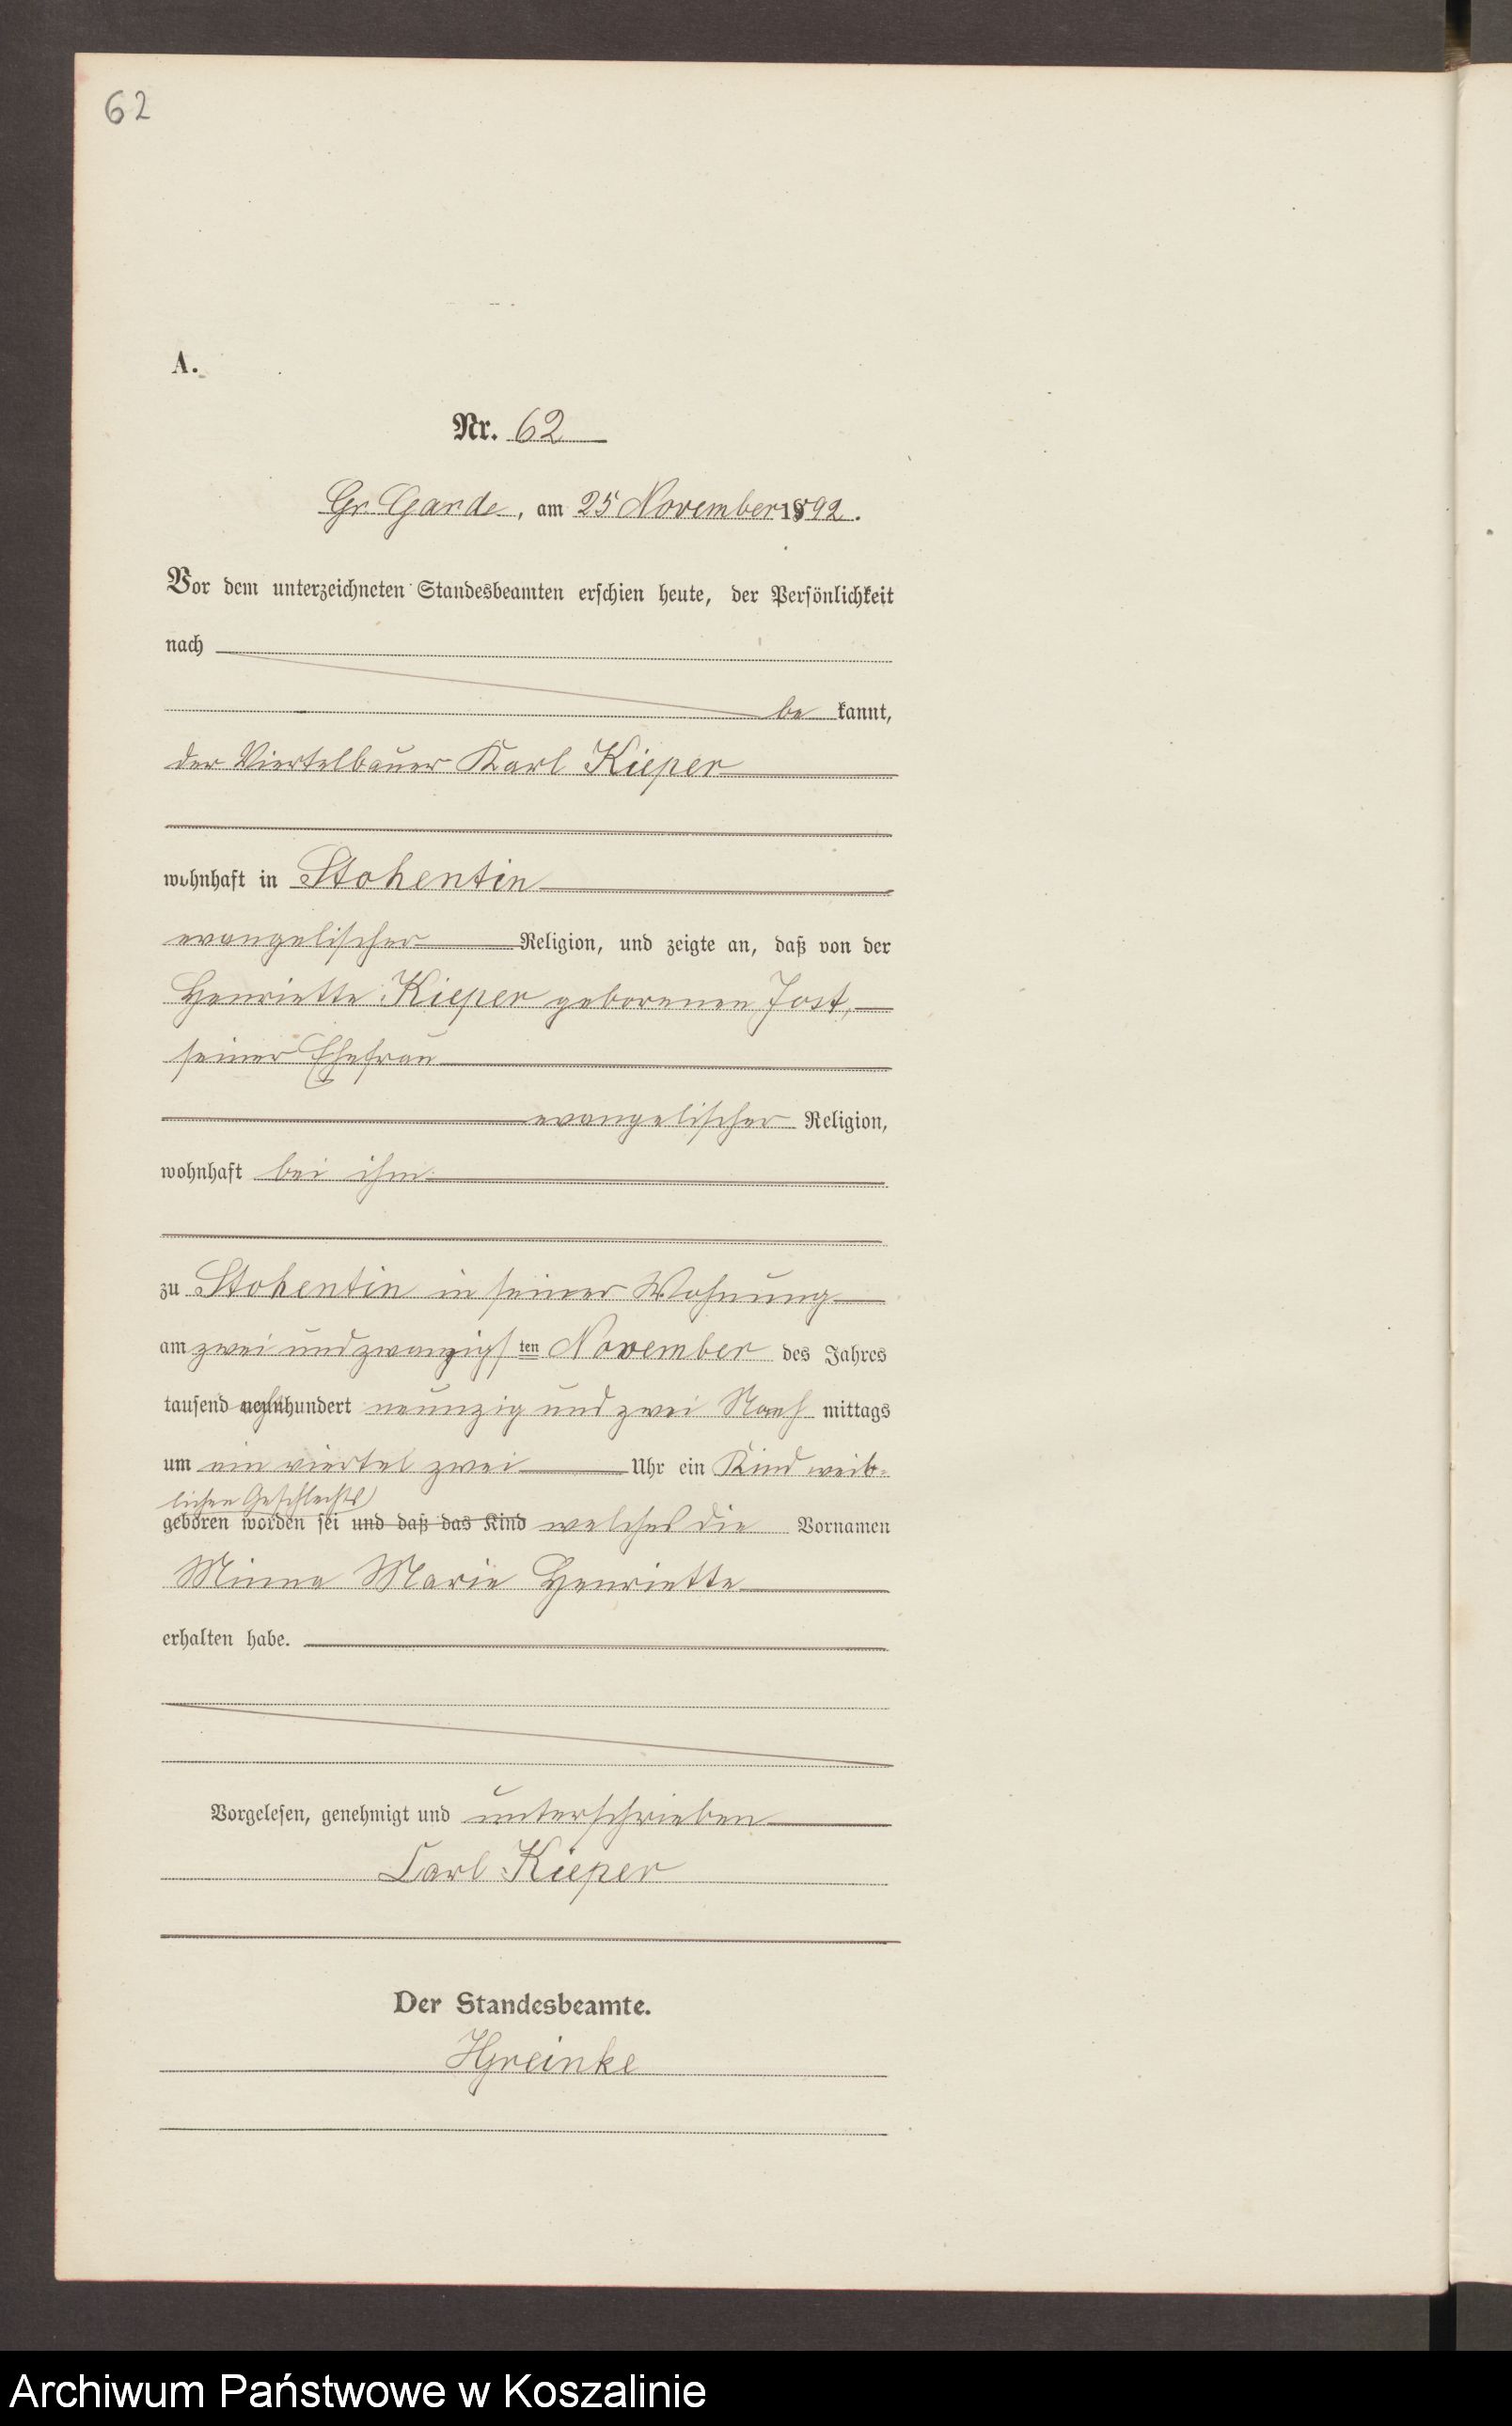 62
A.
Nr. 62
Gr. Garde, am 25 November 1892.
Vor dem unterzeichneten Standesbeamten erschien heute, der Persönlichkeit
nach
be kannt,
der Viertelbauer Karl Kieper
wohnhaft in Stohentin
evangelischer Religion, und zeigte an, daß von der
Henriette Kieper geborenen Jost,
seiner Ehefrau
evangelischer Religion,
wohnhaft bei ihm
zu Stohentin in seiner Wohnung
am zwei und zwanzigsten November des Jahres
tausend achthundert neunzig und zwei Nach mittags
um ein viertel zwei Uhr ein Kind weib-
lichen Geschlechts
geboren worden sei und daß das Kind welches die Vornamen
Minna Marie Henriette
erhalten habe.
Vorgelesen, genehmigt und unterschrieben
Carl Kieper
Der Standesbeamte.
Archiwum Państwowe w Koszalinie